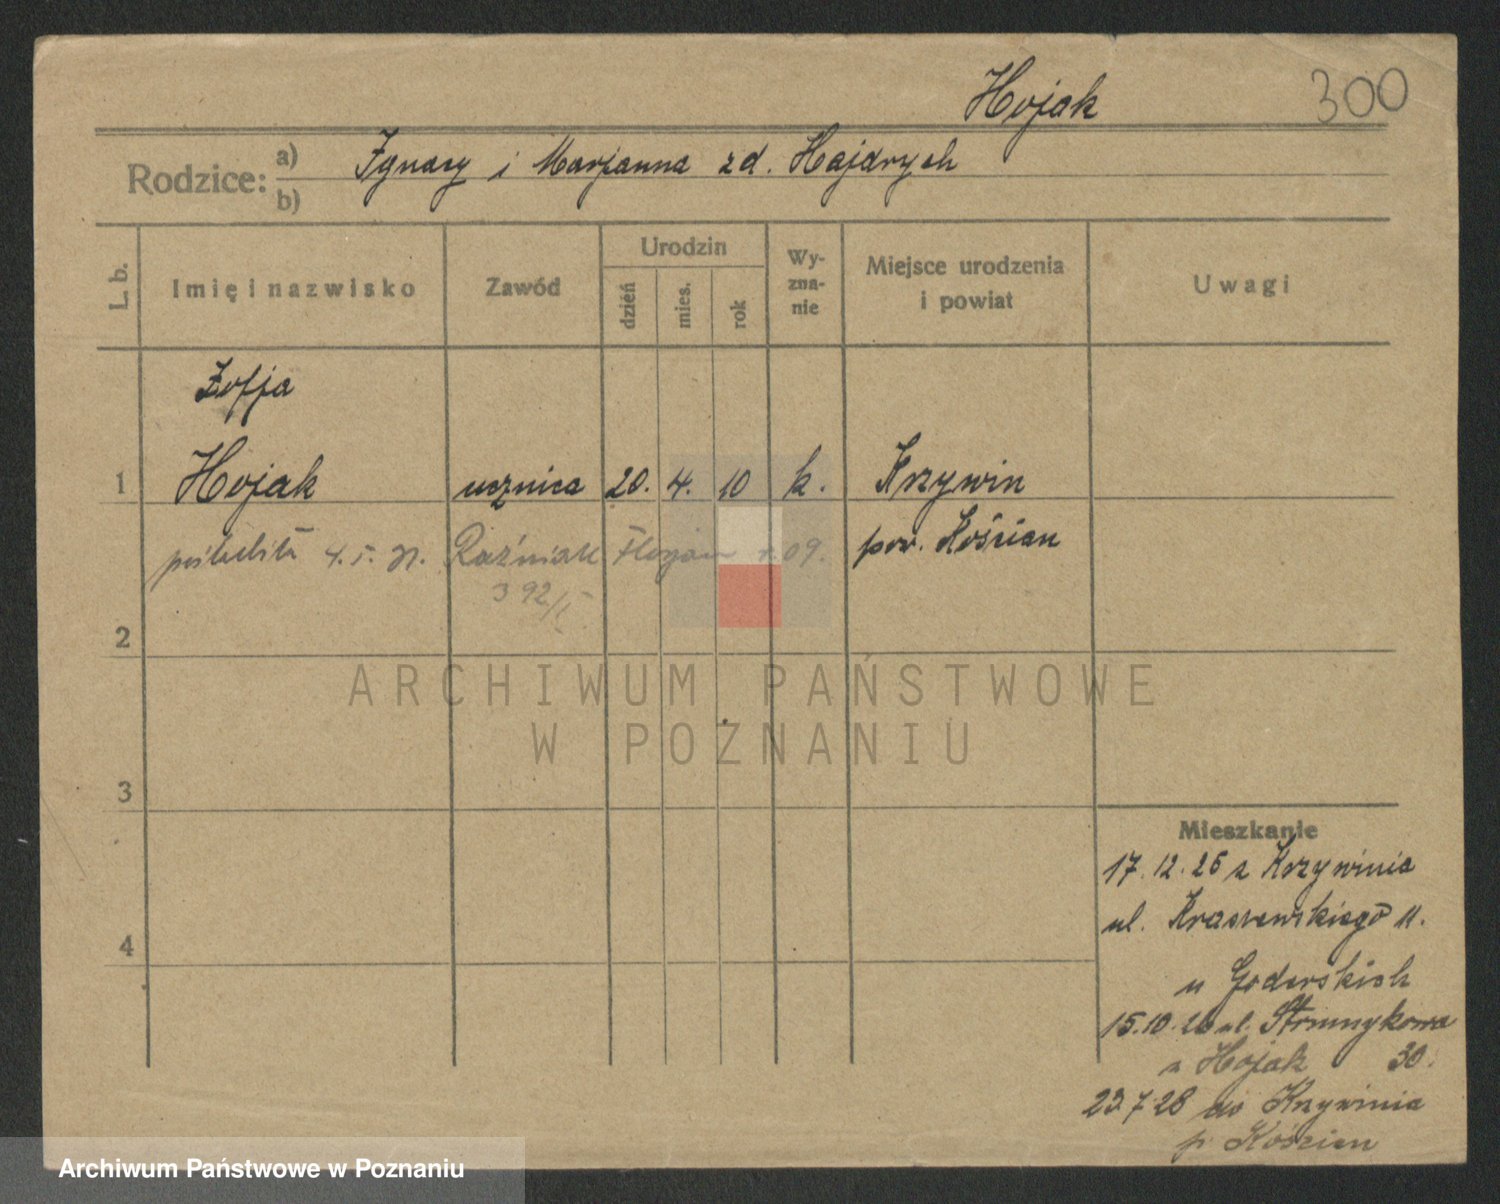 Hojak 300
Rodzice: a) Ignacy i Marjanna zd. Hajdrych
b)
L. b. Imię i nazwisko Zawód Urodzin dzień mies. rok Wy-zna-nie Miejsce urodzenia i powiat Uwagi
Zofja
1 Hojak ucznica 20. 4. 10 k. Krzywin
4. 5. 31. Raźniak Florjan 09. pow. Kościan
392/I
2
ARCHIWUM PAŃSTWOWE
W POZNANIU
3
Mieszkanie
17.12.25 z Krzywinia
ul. Kraszewskiego 11.
4
u Goderskich
15.10. ul. Strumykowa
u Hojak 30.
23.7.28 do Krzywinia
p. Kościan
Archiwum Państwowe w Poznaniu